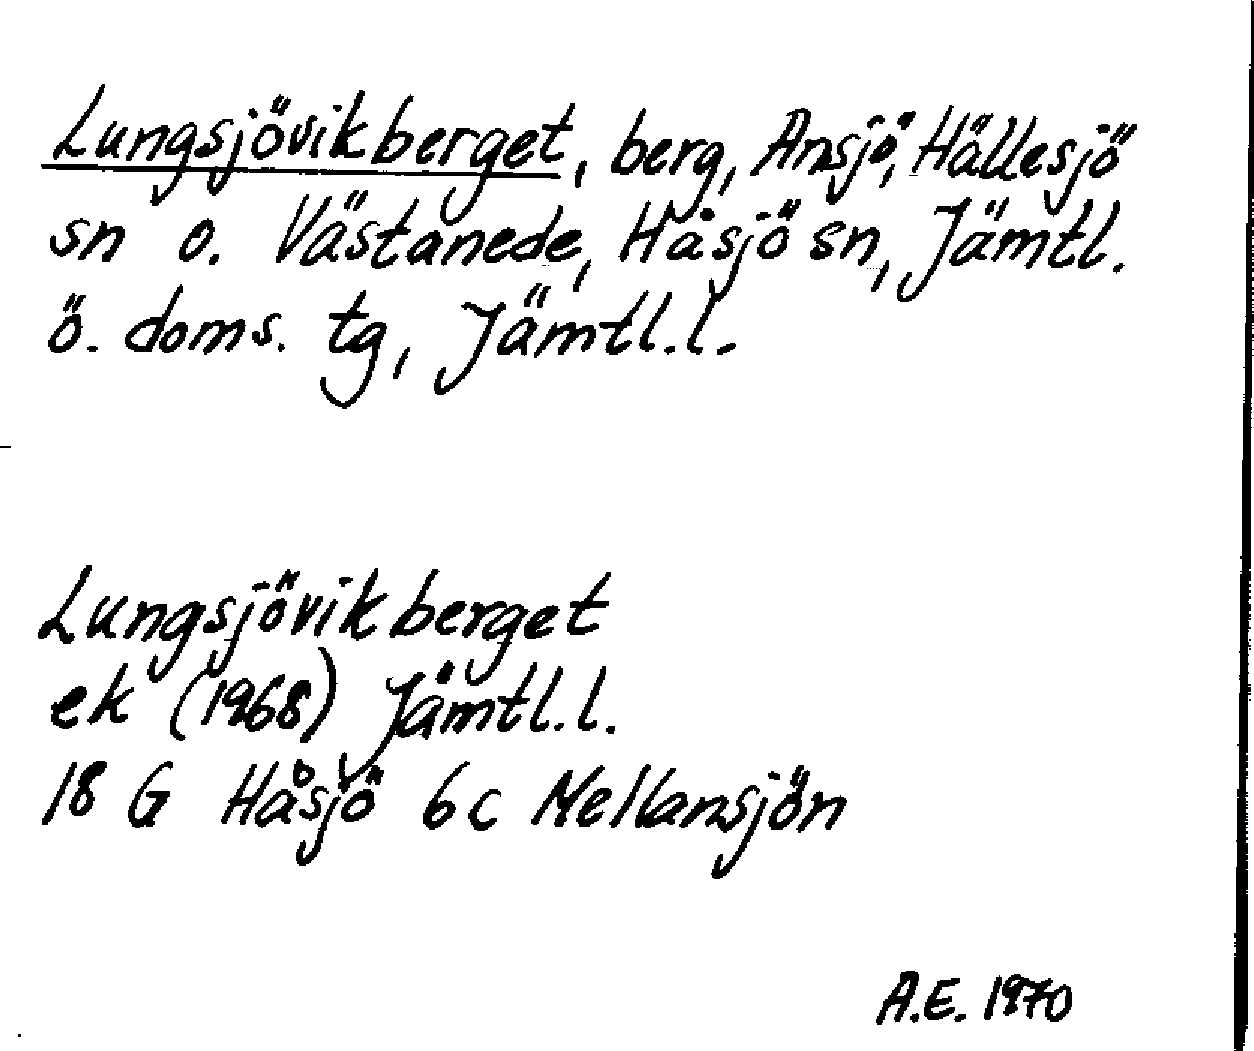 Lungsjövikberget, berg, Ansjö, Hällesjö
sn o. Västanede, Håsjö sn, Jämtl.
ö. doms. tg, Jämtl.l.
Lungsjövikberget
ek (1968) Jämtl.l.
18 G Håsjö 6c Mellansjön
A.E. 1970